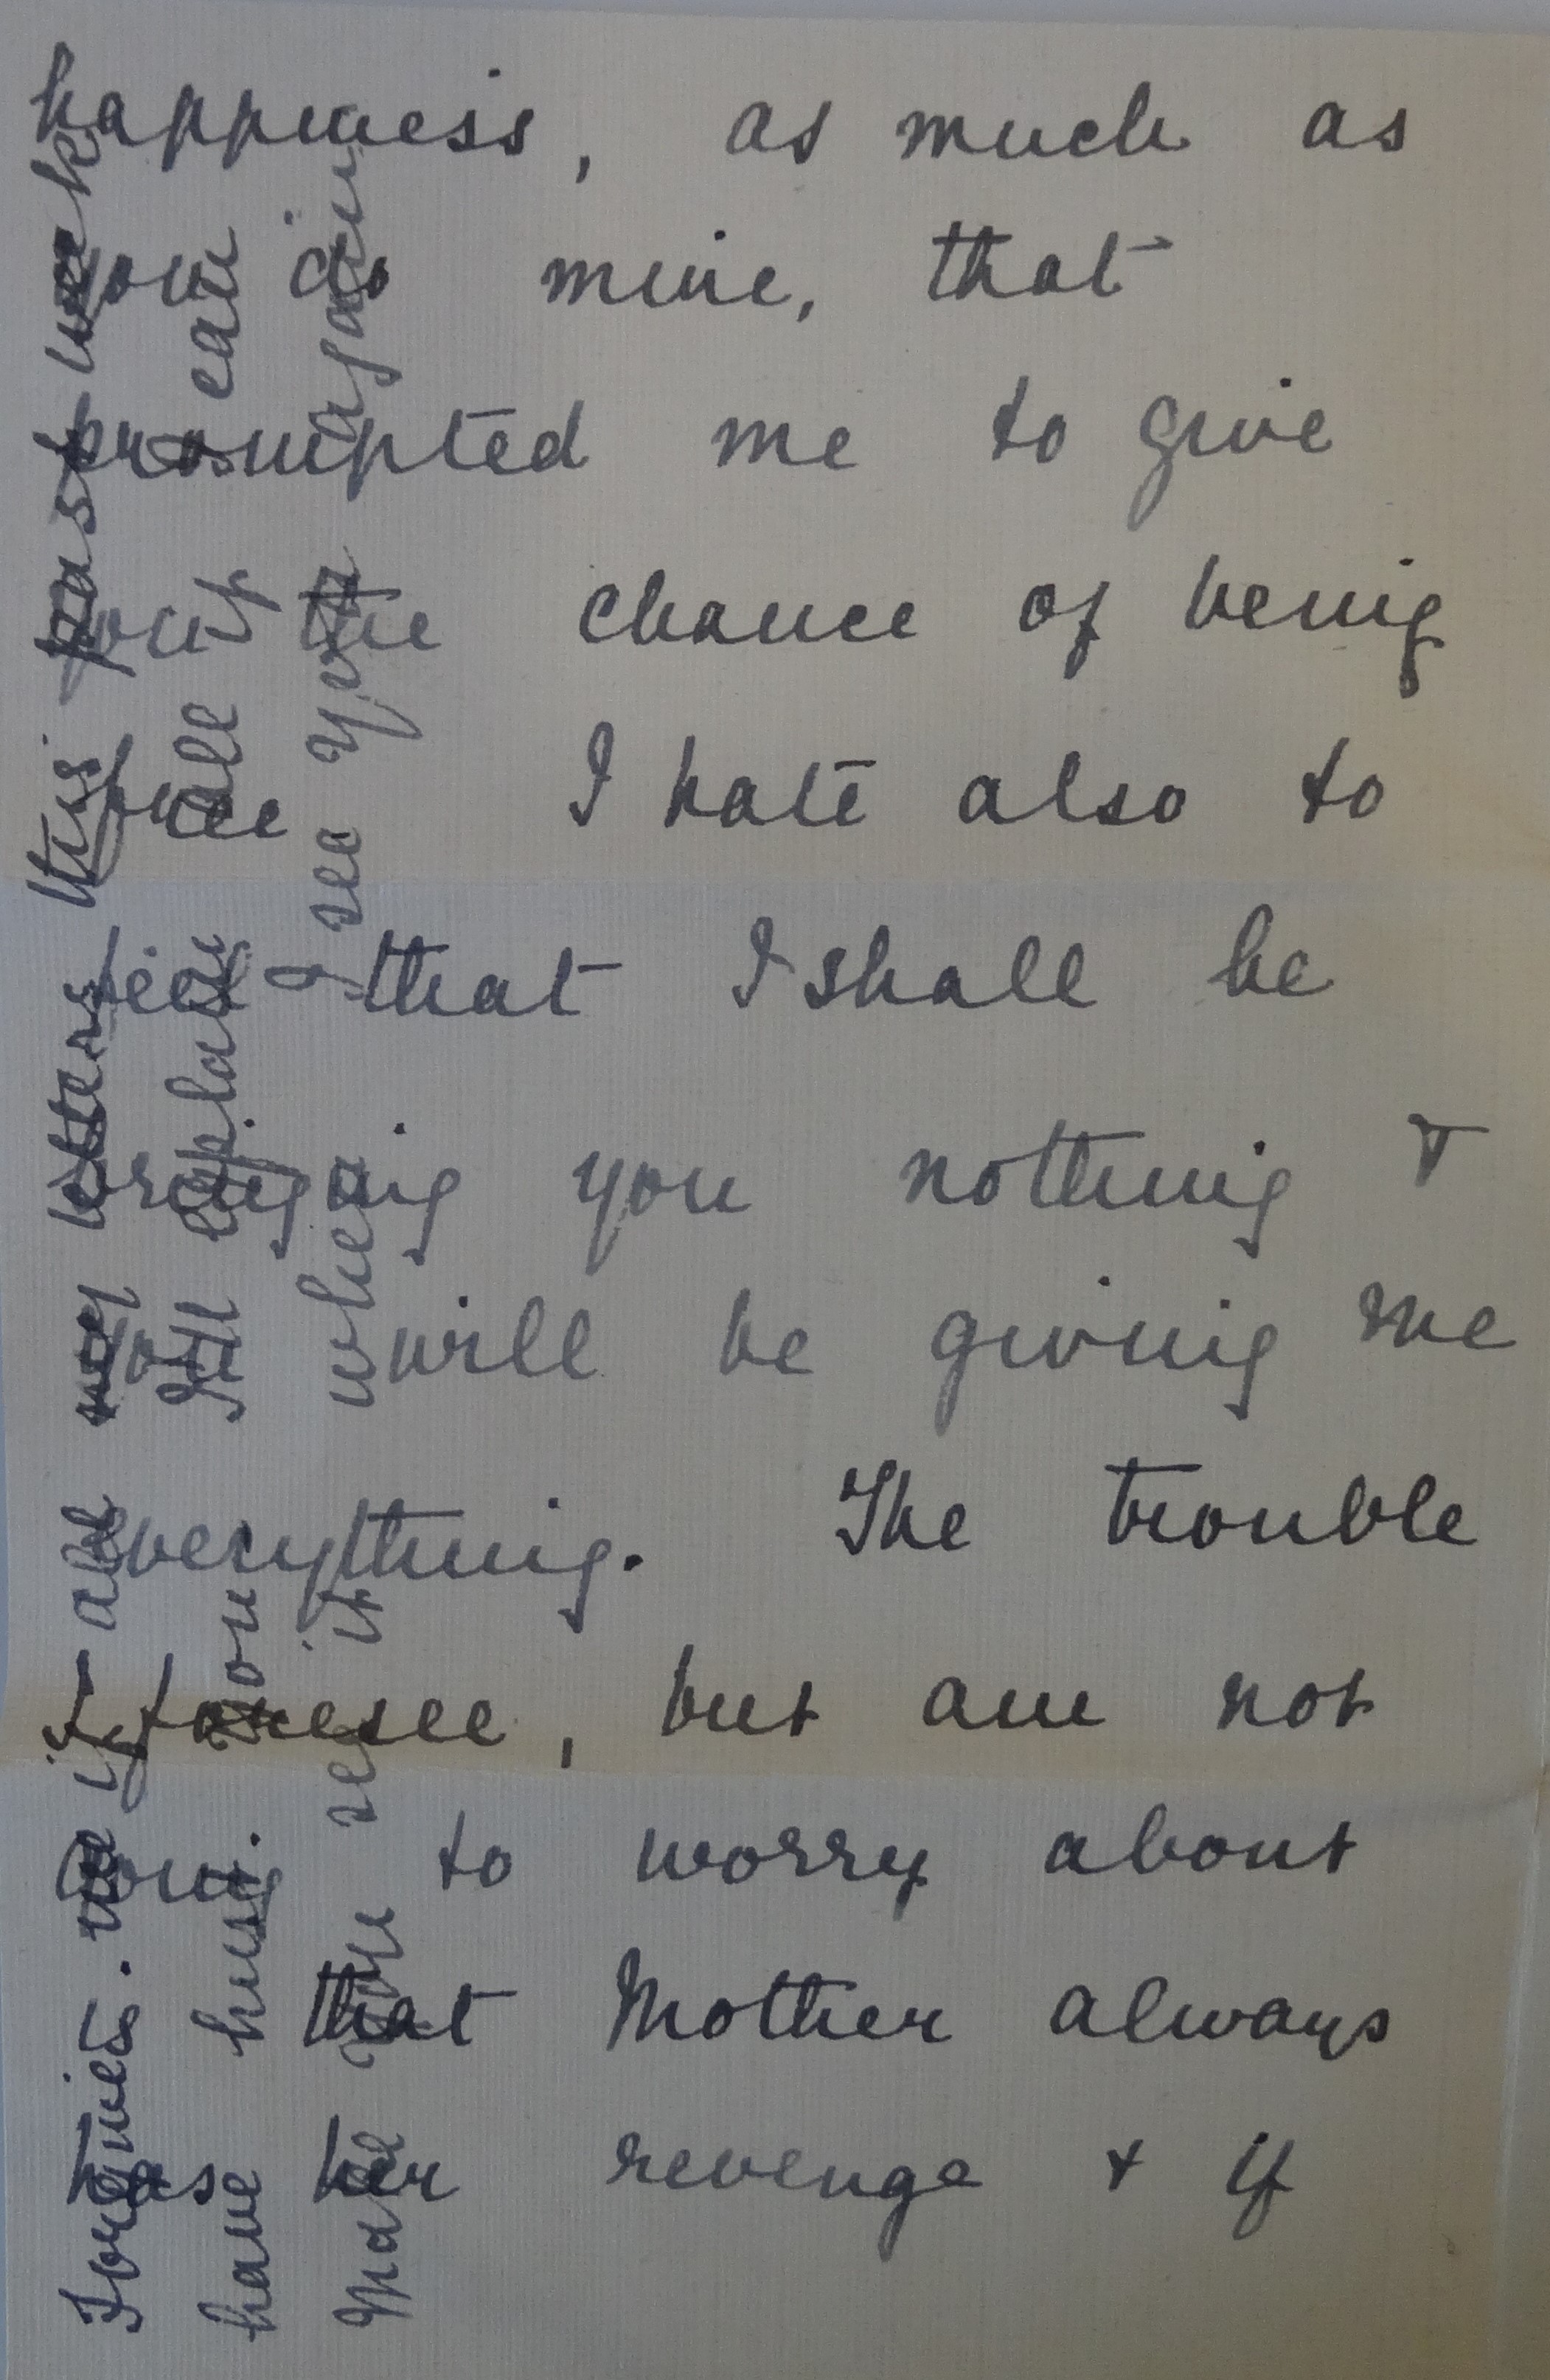 happiness, as much as
you do mine, that
prompted me to give
you the chance of being
free I hate also to
feel that I shall be
bringing you nothing &
you will be giving me
everything. The trouble
I foresee, but am not
going to worry about
is that Mother always
has her revenge & if
me if all my letters this past week
have hurt. you I'll explain all I can
Make you see it when I see you again